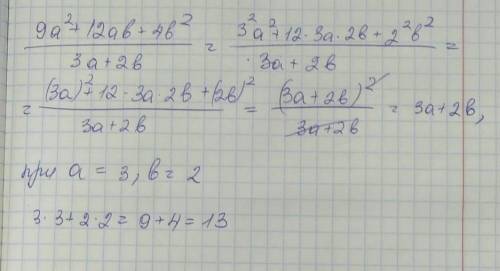 (9a² + 12ab + 4b²)/(3a + 2b) = (3²a² + 12·3a·2b + 2²b²)/(·3a + 2b) =
= ((3a)² + 12·3a·2b + (2b)²)/(3a + 2b) = (3a + 2b)²/(3a + 2b) = 3a + 2b,
при a = 3, b = 2
3·3 + 2·2 = 9 + 4 = 13